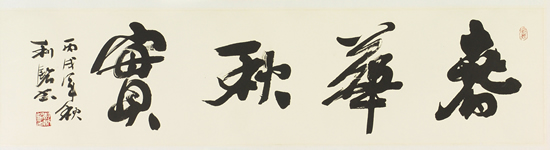 春華秋實
丙戌年秋
利